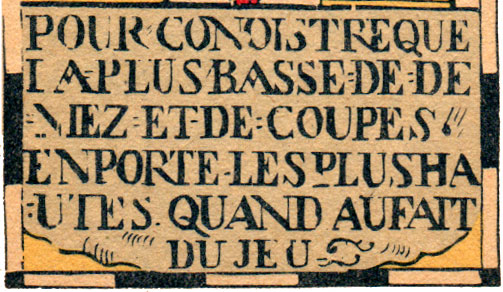 POUR CONOISTRE QUE
LA=PLUS BASSE=DE=DE
=NIEZ=ET=DE=COUPES
ENPORTE=LES PLUS HA
=UTES QUAND AU FAIT
DU JEU